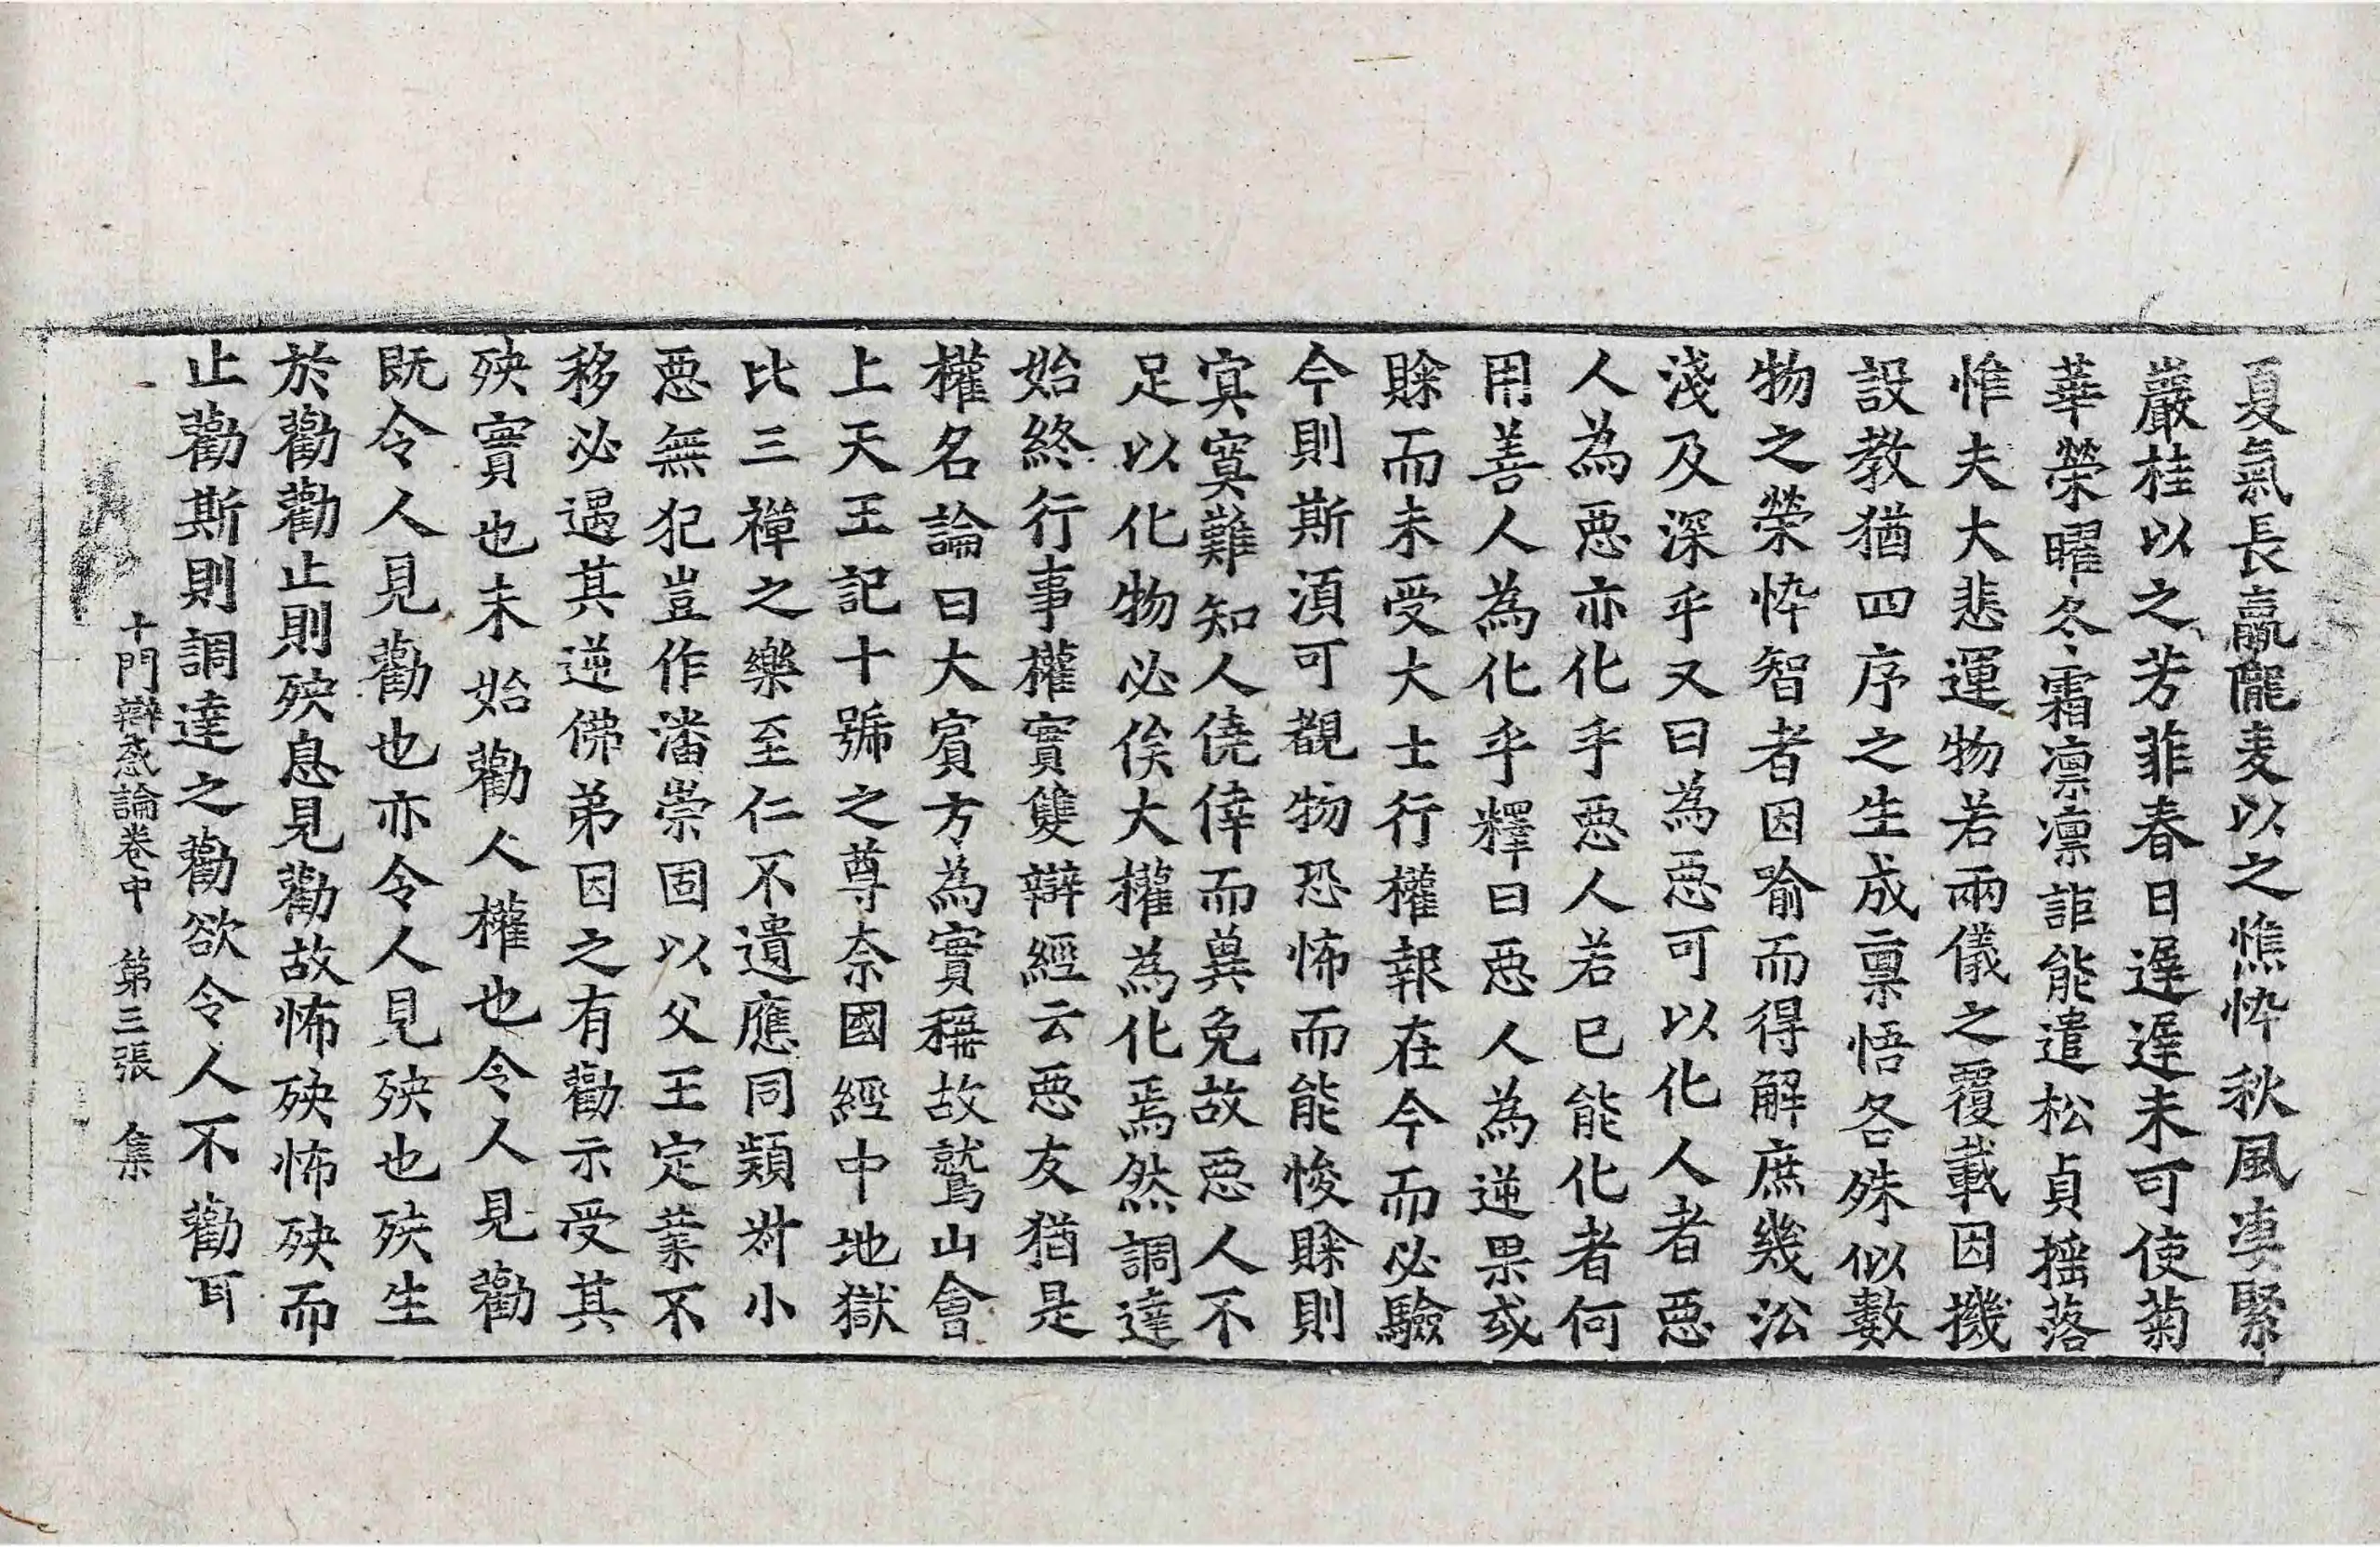 夏氣長贏隴麦以之憔悴秋風凄緊
巖桂以之芳菲春日遅遅未可使菊
華榮曜冬霜凛凛詎能遣松貞揺落
惟夫大悲運物若兩儀之覆載因機
設教猶四序之生成禀悟各殊似數
物之榮悴智者因喻而得解庶幾㳂
淺及深乎又曰為惡可以化人者惡
人為惡亦化乎惡人若已能化者何
用善人為化乎釋曰惡人為逆果或
賖而未受大士行權報在今而必驗
今則斯湏可覩物恐怖而能悛賖則
冥寞難知人僥倖而兾免故惡人不
足以化物必俟大權為化焉然調達
始終行事權實雙辯經云惡友猶是
權名論曰大賔方為實稱故鷲山會
上天王記十號之尊奈國經中地獄
比三禪之樂至仁不遺應同類対小
惡無犯豈作潘崇固以父王定業不
移必遇其逆佛弟因之有勸示受其
殃實也未始勸人權也令人見勸
旣令人見勸也亦令人見殃也殃生
於勸勸止則殃息見勸故怖殃怖殃而
止勸斯則調達之勸欲令人不勸耳
十門辯惑論卷中 第三張 集